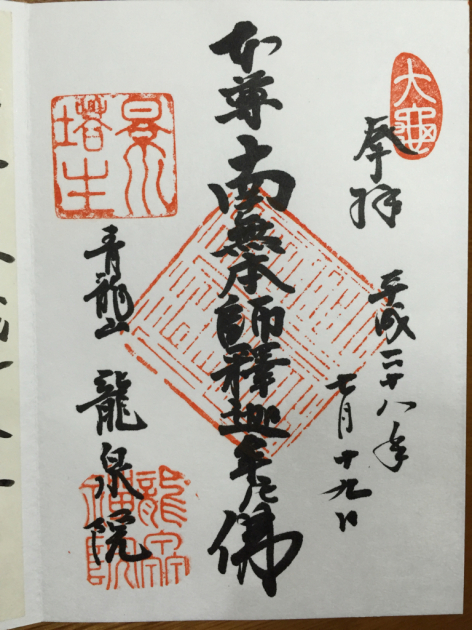 大龜
奉拝
平成二十八年
七月十九日
本尊 南無本師釋迦牟尼佛
景川塔主
青龍山 龍泉院